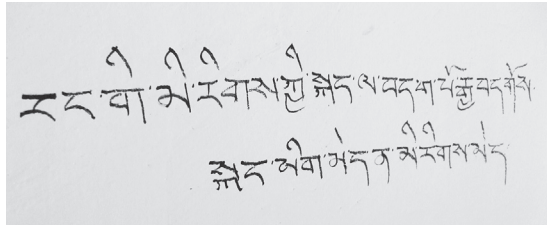 རང་གི་མི་རིགས་ཀྱི་སྐད་ལ་བདག་པོ་རྒྱོབ་དགོས་
སྐད་ཡིག་མེད་ན་མི་རིགས་མེད་